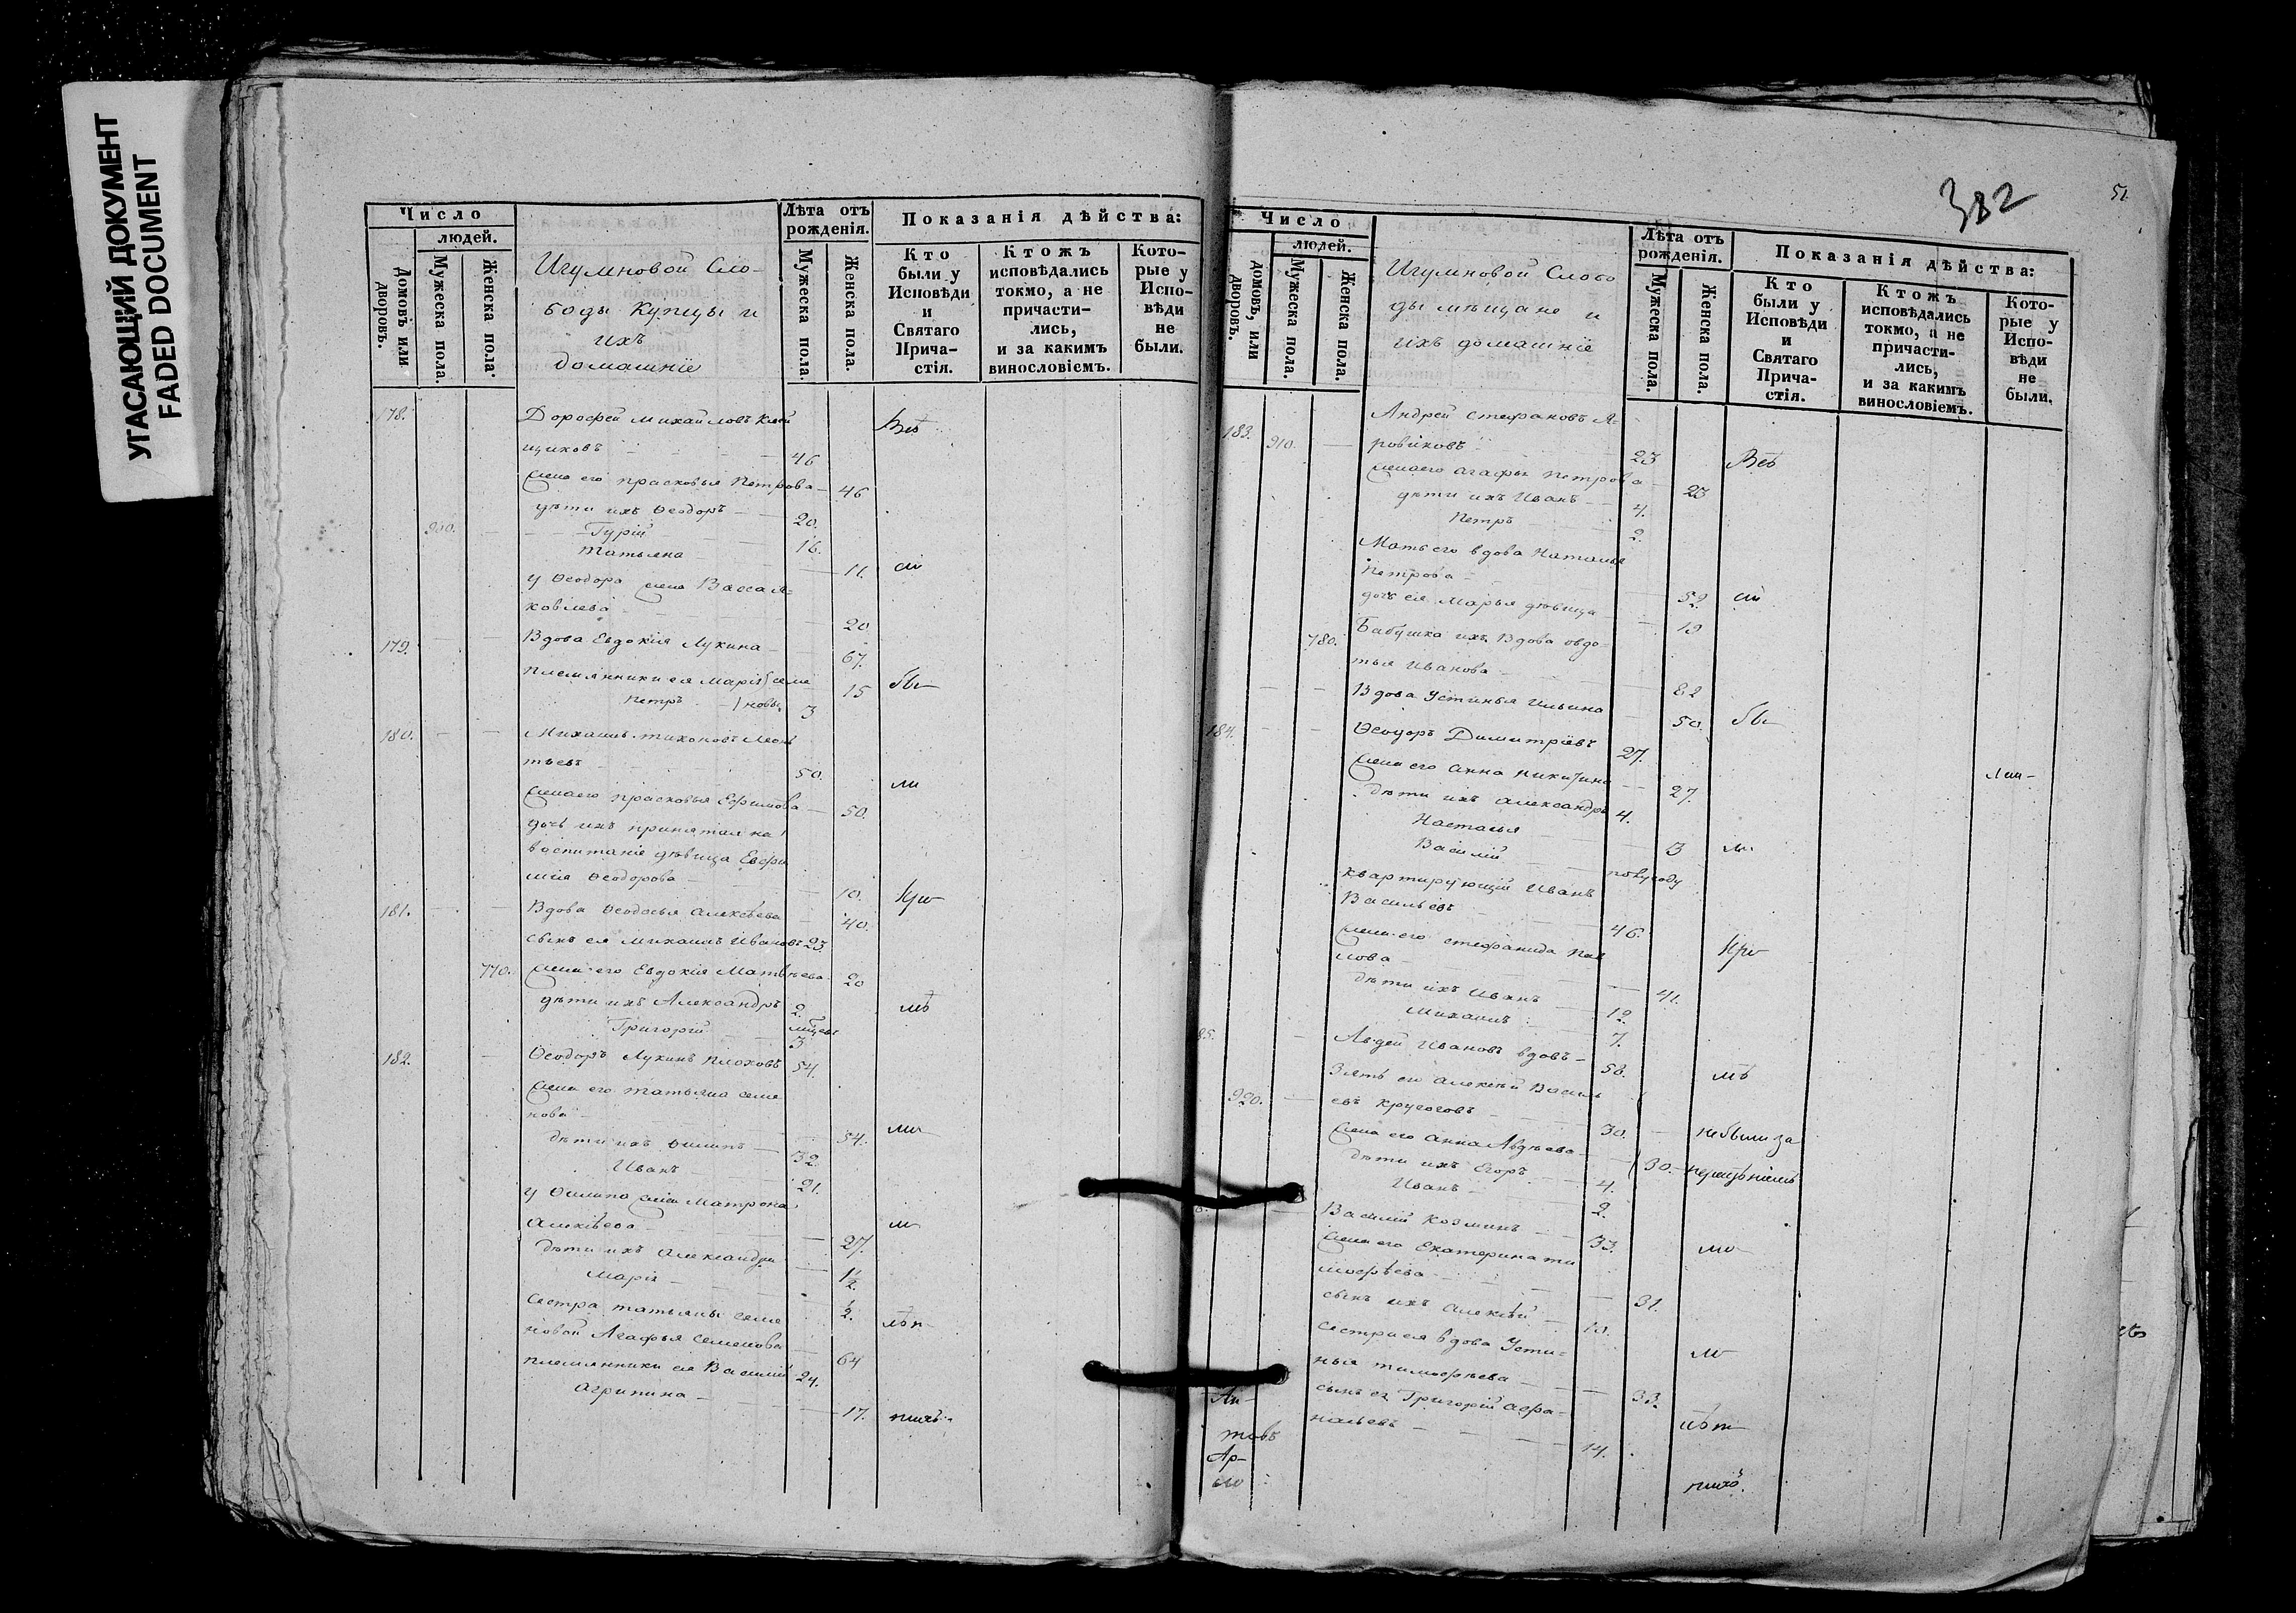 УГАСАЮЩИЙ ДОКУМЕНТ
FADED DOCUMENT
Число
людей.
Домовъ или дворовъ.
Мужеска пола.
Женска пола.
Игумновой Сло-
боды Купцы и
ихъ
домашніе
Лѣта отъ
рожденія.
Мужеска пола.
Женска пола.
Показанія дѣйства:
Кто
были у
Исповѣди
и
Святаго
Прича-
стія.
Ктожъ
исповѣдались
токмо, а не
причасти-
лись,
и за какимъ
винословіемъ.
Кото-
рые у
Испо-
вѣди
не
были.
178.
Дорофей Михайловъ
щиковъ 46
его Прасковья Петрова 46
дѣти ихъ Ѳеодоръ 20.
900. Гурій 16.
Татьяна 11.
у Ѳеодора Васса Я=
ковлева 20
179. Вдова Евдокія Лукина 67.
племянники ея Марія 15
Петръ 3
180. Михаилъ Тихоновъ
тьевъ 50.
Прасковья Ефимова 50.
дочь ихъ принятая на
воспитаніе дѣвица Евфи
мія Ѳеодорова 10.
181. Вдова Ѳеодосья Алексѣева 40.
сынъ ея Михаилъ Ивановъ 23.
770. его Евдокія Матвѣева 20
дѣти ихъ Александръ 2.
Григорій 3
182. Ѳеодоръ Лукинъ Плоховъ 54.
его Татьяна Семе
нова 54.
дѣти ихъ Филипъ 32.
Иванъ 21.
у Филипа Матрона
Алексѣева 27.
дѣти ихъ Александра 1½.
Марія ½.
Сестра Татьяны Семе
новой Агафья Семенова 64
племянники ея Василій 24.
Агрипина 17.
382
51
Число
людей.
домовъ, или дворовъ.
Мужеска пола.
Женска пола.
Игумновой Слобо
ды мѣщане и
ихъ домашніе
Лѣта отъ
рожденія.
Мужеска пола.
Женска пола.
Показанія дѣйства:
Кто
были у
Исповѣди
и
Святаго
Прича-
стія.
Ктожъ
исповѣдались
токмо, а не
причасти-
лись,
и за какимъ
винословіемъ.
Кото-
рые у
Испо-
вѣди
не
были.
Андрей Стефановъ Я=
183. 910. ровиковъ 23
Агафья Петрова 23
дѣти ихъ Иванъ 4.
Петръ 2.
Мать его вдова Наталья
Петрова 52.
дочь ея Марья дѣвица 19
780. Бабушка ихъ вдова Овдо-
тья Иванова 82
Вдова Устинья Ильина 50.
184. Ѳеодоръ Димитріевъ 27.
его Анна Никитина 27.
дѣти ихъ Александръ 4.
Настасья 3
Василій полугоду
квартирующій Иванъ
Васильевъ 46.
его Стефанида Пав
лова 41.
дѣти ихъ Иванъ 12
Михаилъ 7.
85. Авдей Ивановъ вдовъ 58.
Зять его Алексѣй Василь
920. евъ Круговъ 30. не были за
его Анна Авдѣева 30.
дѣти ихъ Егоръ 4.
Иванъ 2.
Василій Козминъ 33.
его Екатерина Ти
мофѣева 31.
сынъ ихъ Алексѣй 10.
сестра ея вдова Усти=
нья Тимофѣева 33.
сынъ ея Григорій Афа-
насьевъ 14.